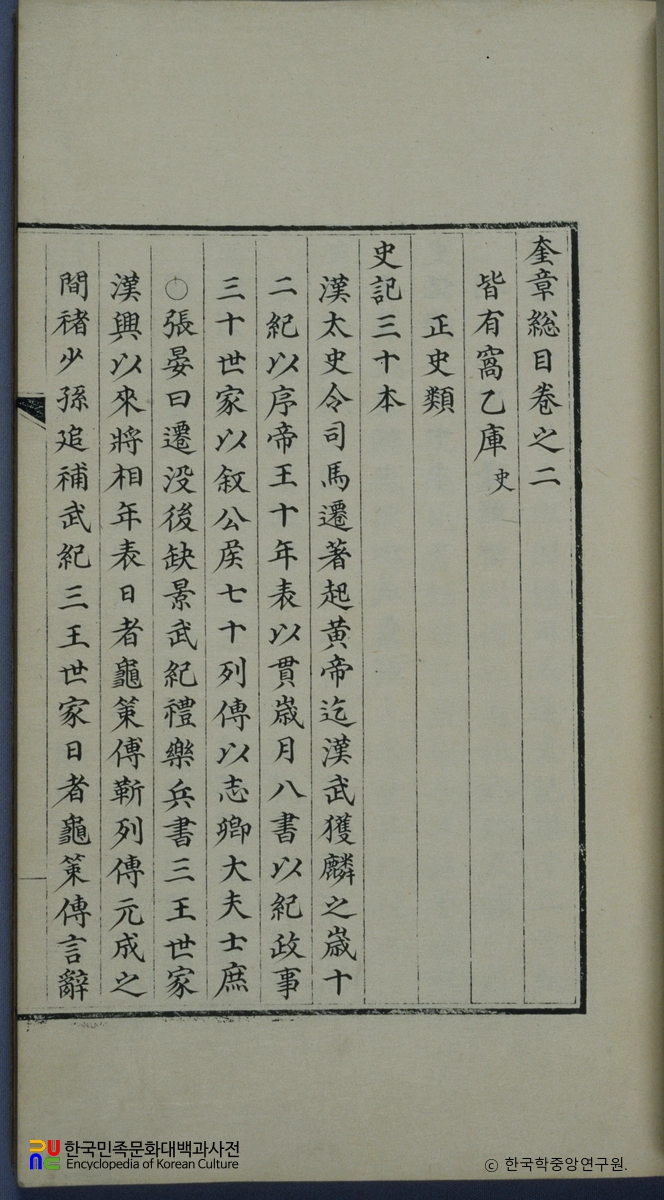 奎章緫目卷之二
皆有窩乙庫史
正史類
史記三十本
漢太史令司馬遷著起黃帝迄漢武獲麟之歲十
二紀以序帝王十年表以貫歲月八書以紀政事
三十世家以叙公矦七十列傳以志卿大夫士庶
○張晏曰遷没後缺景武紀禮樂兵書三王世家
漢興以來將相年表日者龜筞傳靳列傳元成之
間褚少孫追補武紀三王世家日者龜筞傳言辭
한국민족문화대백과사전
Encyclopedia of Korean Culture
© 한국학중앙연구원.